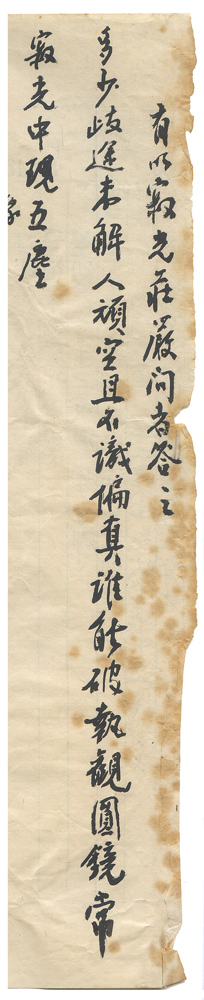 有以寂光莊嚴問者答之
多少歧途未解人頑空且不識偏真誰能破執觀圓鏡常
寂光中現五塵
象